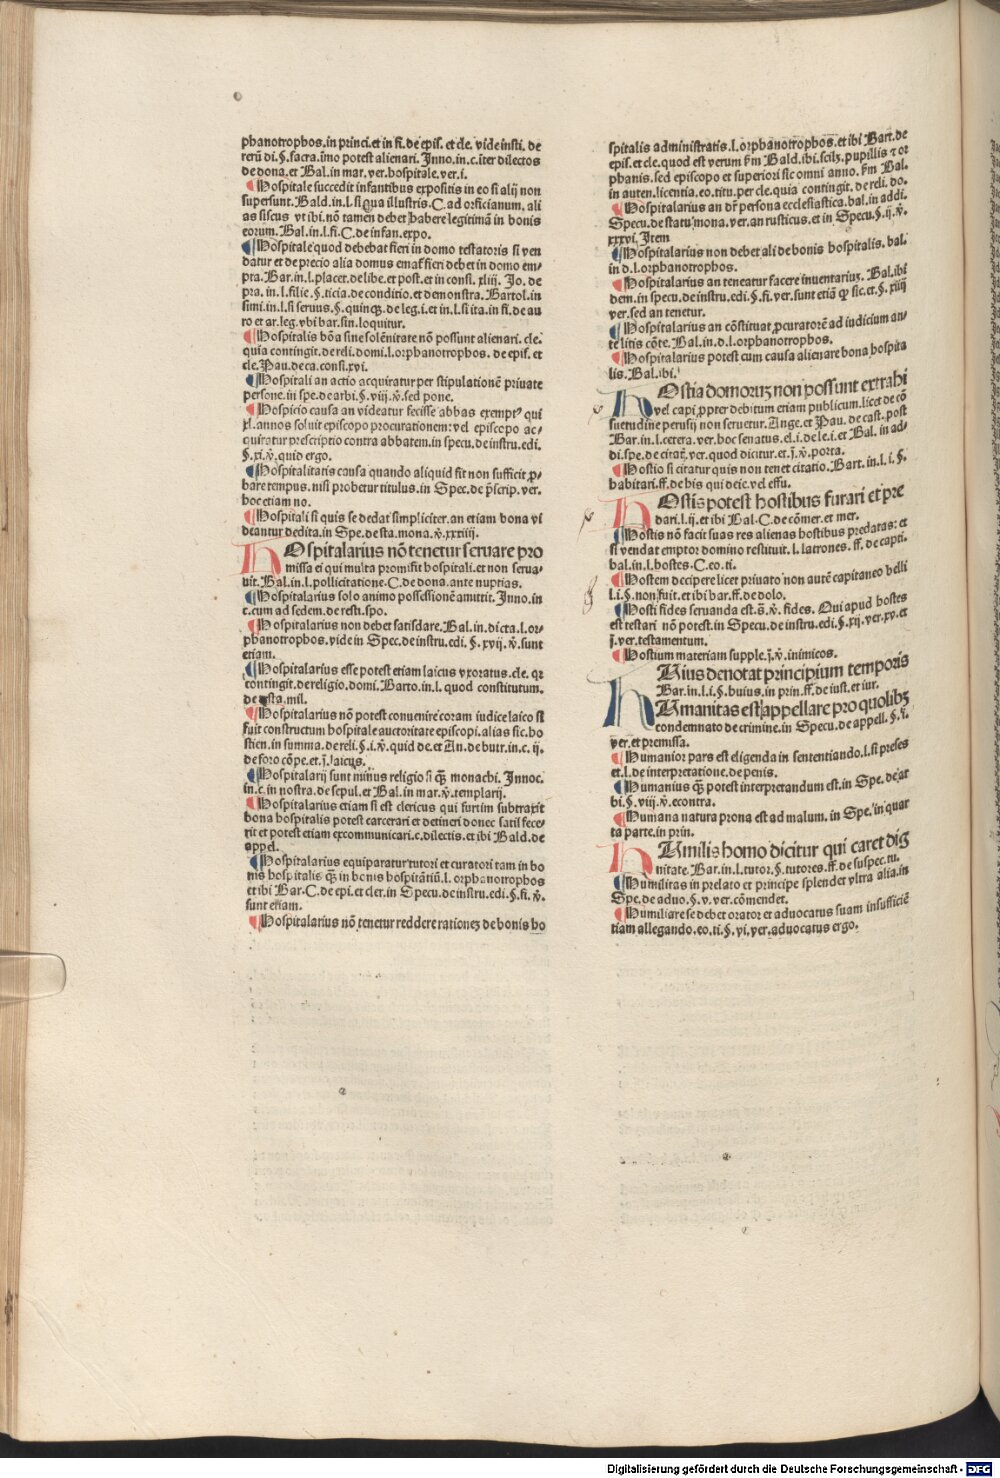 phanotrophos.in princi.et in fi.de epis. et cle. vide insti. de
rerū di.§.sacra.imo potest alienari. Inno.in.c.iter dilectos
de dona.et Bal.in mar.ver.hospitale.ver.i.
¶Hospitale succedit infantibus expositis in eo si alij non
supersunt.Bald.in.l.si qua illustris.C.ad orficianum.ali
as fiscus vt ibi.nō tamen debet habere legitimā in bonis
eorum.Bal.in.l.fi.C.de infan.expo.
¶Hospitale quod debebat fieri in domo testatoris si ven
datur et de precio alia domus emat̄ fieri debet in domo em-
pta.Bar.in.l.placet.de libe.et post.et in consi.xliij. Jo.de
pra.in.l.filie.§.ticia.de conditio.et demonstra.Bartol.in
simi.in.l.si seruus.§.quinqz.de leg.i.et in.l.si ita.in fi.de au
ro et ar.leg.vbi bar.sin.loquitur.
¶Hospitalis bōa sine solēnitate nō possunt alienari. cle.
quia contingit.de reli.domi.l.orphanotrophos. de epis.et
cle.Pau.de ca.consi.xvi.
¶Hospitali an actio acquiratur per stipulationē priuate
persone.iii spe.de arbi.§.viij.v̄.sed pone.
¶Hospicio causa an videatur fecisse abbas exempt⁹ qui
xl.annos soluit episcopo procurationem:vel episcopo ac-
quiratur prescriptio contra abbatem.in specu.de instru.edi.
§.xi.v̄.quid ergo.
¶Hospitalitatis causa quando aliquid fit non sufficit ꝓ-
bare tempus.nisi probetur titulus.in Spec.de p̄scrip.ver.
hoc etiam no.
¶Hospitali si quis se dedat simpliciter.an etiam bona vi
deantur dedita.in Spe.de sta.mona.v̄.xxxiij.
HOspitalarius nō tenetur seruare pro
missa ei qui multa promisit hospitali.et non serua-
uit.Bal.in.l.pollicitatione.C.de dona.ante nuptias.
¶Hospitalarius solo animo possessionē amittit. Inno.in
c.cum ad sedem.de resti.spo.
¶Hospitalarius non debet satisdare.Bal.in.dicta.l.or-
phanotrophos.vide in Spec.de instru.edi. §.xvij.v̄.sunt
etiam.
¶Hospitalarius esse potest etiam laicus vxoratus.cle.qr
contingit.de religio.domi.Barto.in.l. quod constitutum.
de testa.mil.
¶Hospitalarius nō potest conuenire coram iudice laico si
fuit constructum hospitale auctoritate episcopi.alias sic.ho
stien.in summa.de reli.§.i.v̄.quid de.et An.de butr.in.c.ij.
de foro cōpe.et.j.laicus.
¶Hospitalarij sunt minus religio si q̄ȝ monachi. Innoc.
in.c.in nostra.de sepul.et Bal.in mar.v̄.templarij.
¶Hospitalarius etiam si est clericus qui furtim subtraxit
bona hospitalis potest carcerari et detineri donec satisfece-
rit et potest etiam excommunicari.c.dilectis.et ibi Bald.de
appel.
¶Hospitalarius equiparatur tutori et curatori tam in bo
nis hospitalis q̄ȝ in bonis hospitātiū.l. orphanotrophos
et ibi Bar.C.de epi.et cler.in Specu.de instru.edi.§.fi.v̄.
sunt etiam.
¶Hospitalarius nō tenetur reddere rationeȝ de bonis ho
spitalis administratis.l.orphanotrophos.et ibi Bart.de
epis.et cle.quod est verum ẜm Bald.ibi.scilȝ.pupillis ⁊ or
phanis.sed episcopo et superiori sic omni anno.ẜm Bal.
in auten.licentia.eo.titu.per cle.quia contingit.de reli. do.
¶Hospitalarius an dr̄ persona ecclesiastica.bal.in addi.
Specu.de statu mona.ver.an rusticus.et in Specu.§.ij.v̄.
xxxvi.Item
¶Hospitalarius non debet ali de bonis hospitalis. bal.
in d.l.orphanotrophos.
¶Hospitalarius an teneatur facere inuentariuȝ. Bal.ibi
dem.in specu.de instru.edi.§.fi.ver.sunt etiā qꝫ sic.et.§.xiij
ver.sed an tenetur.
¶Hospitalarius an cōstituat ꝓcuratorē ad iudicium an-
te litis cōte.Bal.in.d.l.orphanotrophos.
¶Hospitalarius potest cum causa alienare bona hospita
lis.Bal.ibi.
HOstia domoruȝ non possunt extrahi
vel capi ꝓpter debitum etiam publicum.licet de cō
suetudine perusij non seruetur.Ange.et Pau. de cast. post
Bar.in.l.cetera.ver.hoc senatus.el.i.de le.i.et Bal. in ad-
di.spe.de citat̄.ver.quod dicitur.et.j.v̄.porta.
¶Hostio si citatur quis non tenet citatio. Bart.in.l.i.§.
habitari.ff.de his qui deic.vel effu.
HOstis potest hostibus furari et pre
dari.l.ij.et ibi Bal.C.de cōmer.et mer.
¶Hostis nō facit suas res alienas hostibus predatas: et
si vendat emptor domino restituit.l.latrones. ff. de capti.
bal.in.l.hostes.C.eo.ti.
¶Hostem decipere licet priuato non autē capitaneo belli
l.i.§.non fuit.et ibi bar.ff.de dolo.
¶Hosti fides seruanda est.s̄.v̄. fides. Qui apud hostes
est testari nō potest.in Specu.de instru.edi.§.xij.ver.xv.et
j̄.ver.testamentum.
¶Hostium materiam supple.j̄.v̄.inimicos.
HUius denotat principium temporis
Bar.in.l.i.§.huius.in prin.ff.de iust.et iur.
HUmanitas est appellare pro quolibȝ
condemnato de crimine.in Specu.de appell. §.i.
ver.et premissa.
¶Humanior pars est eligenda in sententiando.l.si preses
et.l.de interpretatione.de penis.
¶Humanius q̄ȝ potest interpretandum est.in Spe. de ar
bi.§.viij.v̄.econtra.
¶Humana natura prona est ad malum. in Spe. in quar
ta parte.in prin.
HUmilis homo dicitur qui caret dig
nitate.Bar.in.l.tutor.§.tutores.ff.de suspec.tu.
¶Humilitas in prelato et principe splendet vltra alia.in
Spe.de aduo.§.v.ver.cōmendet.
¶Humiliare se debet orator et aduocatus suam insufficiē
tiam allegando.eo.ti.§.vi.ver.aduocatus ergo.
Digitalisierung gefördert durch die Deutsche Forschungsgemeinschaft - DFG